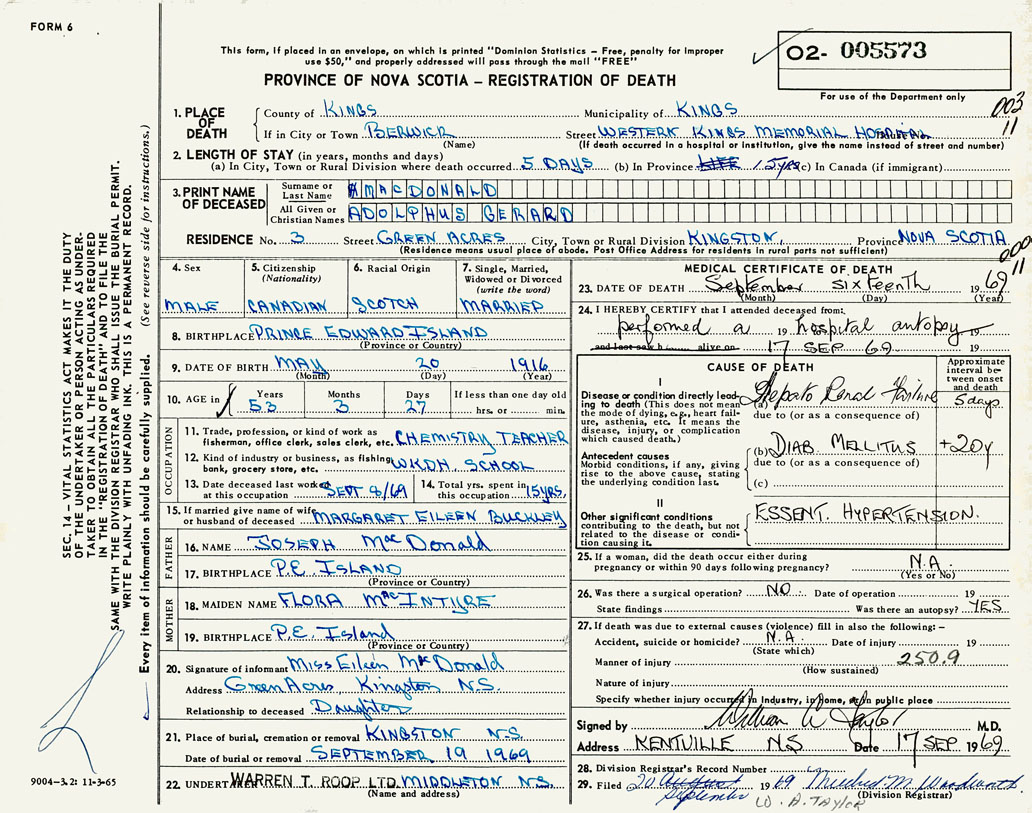 FORM 6
This form, if placed in an envelope, on which is printed "Dominion Statistics – Free, penalty for improper
use $50," and properly addressed will pass through the mail "FREE"
O2- 005573
PROVINCE OF NOVA SCOTIA – REGISTRATION OF DEATH
For use of the Department only
003
11
1. PLACE OF DEATH
County of KINGS Municipality of KINGS
If in City or Town BERWICK Street WESTERN KINGS MEMORIAL HOSPITAL
(Name) (If death occurred in a hospital or institution, give the name instead of street and number)
2. LENGTH OF STAY (in years, months and days)
(a) In City, Town or Rural Division where death occurred 5 DAYS (b) In Province LIFE 15 YRS (c) In Canada (if immigrant)
3. PRINT NAME OF DECEASED
Surname or Last Name MACDONALD
All Given or Christian Names ADOLPHUS GERARD
RESIDENCE No. 3 Street GREEN ACRES City, Town or Rural Division KINGSTON, Province NOVA SCOTIA
(Residence means usual place of abode. Post Office Address for residents in rural parts not sufficient)
000
11
4. Sex
MALE
5. Citizenship (Nationality)
CANADIAN
6. Racial Origin
SCOTCH
7. Single, Married, Widowed or Divorced (write the word)
MARRIED
8. BIRTHPLACE PRINCE EDWARD ISLAND
(Province or Country)
9. DATE OF BIRTH MAY 20 1916
(Month) (Day) (Year)
10. AGE in Years Months Days If less than one day old
53 3 27 hrs. or min.
OCCUPATION
11. Trade, profession, or kind of work as
fisherman, office clerk, sales clerk, etc. CHEMISTRY TEACHER
12. Kind of industry or business, as fishing,
bank, grocery store, etc. WKDH. SCHOOL
13. Date deceased last worked at this occupation SEPT 8/69 14. Total yrs. spent in this occupation 15 YRS.
15. If married give name of wife
or husband of deceased MARGARET EILEEN BUCKLEY
FATHER
16. NAME JOSEPH MacDonald
17. BIRTHPLACE P.E. ISLAND
(Province or Country)
MOTHER
18. MAIDEN NAME FLORA MacINTYRE
19. BIRTHPLACE P.E. Island
(Province or Country)
20. Signature of informant Miss Eileen MacDonald
Address Green Acres, Kingston N.S.
Relationship to deceased Daughter
21. Place of burial, cremation or removal KINGSTON N.S.
Date of burial or removal SEPTEMBER 19 1969
22. UNDERTAKER WARREN T. ROOP LTD. MIDDLETON N.S.
(Name and address)
MEDICAL CERTIFICATE OF DEATH
23. DATE OF DEATH September sixteenth 1969
(Month) (Day) (Year)
24. I HEREBY CERTIFY that I attended deceased from:
performed a 19 hospital autopsy 19
and last saw h alive on 17 SEP 69 19
CAUSE OF DEATH
Approximate interval between onset and death
I
Disease or condition directly leading to death (This does not mean the mode of dying, e.g., heart failure, asthenia, etc. It means the disease, injury, or complication which caused death.)
(a) Hepato Renal Failure 5 days
due to (or as a consequence of)
Antecedent causes
Morbid conditions, if any, giving rise to the above cause, stating the underlying condition last.
(b) DIAB MELLITUS +20y
due to (or as a consequence of)
(c)
II
Other significant conditions
contributing to the death, but not related to the disease or condition causing it.
ESSENT. HYPERTENSION.
25. If a woman, did the death occur either during
pregnancy or within 90 days following pregnancy? N.A.
(Yes or No)
26. Was there a surgical operation? NO Date of operation 19
State findings Was there an autopsy? YES
27. If death was due to external causes (violence) fill in also the following:–
Accident, suicide or homicide? N.A. Date of injury 19
(State which)
Manner of injury 250.9
(How sustained)
Nature of injury
Specify whether injury occurred in Industry, in home, or in public place
Signed by William W Taylor M.D.
Address KENTVILLE NS Date 17 SEP 1969
28. Division Registrar's Record Number
29. Filed 20 August 1969 Mildred M Woodworth
September W. A. TAYLOR (Division Registrar)
SEC. 14 – VITAL STATISTICS ACT MAKES IT THE DUTY
OF THE UNDERTAKER OR PERSON ACTING AS UNDER-
TAKER TO OBTAIN ALL THE PARTICULARS REQUIRED
IN THE "REGISTRATION OF DEATH" AND TO FILE THE
SAME WITH THE DIVISION REGISTRAR WHO SHALL ISSUE THE BURIAL PERMIT.
WRITE PLAINLY WITH UNFADING INK. THIS IS A PERMANENT RECORD.
Every item of information should be carefully supplied. (See reverse side for instructions.)
9004–3.2: 11-3-65